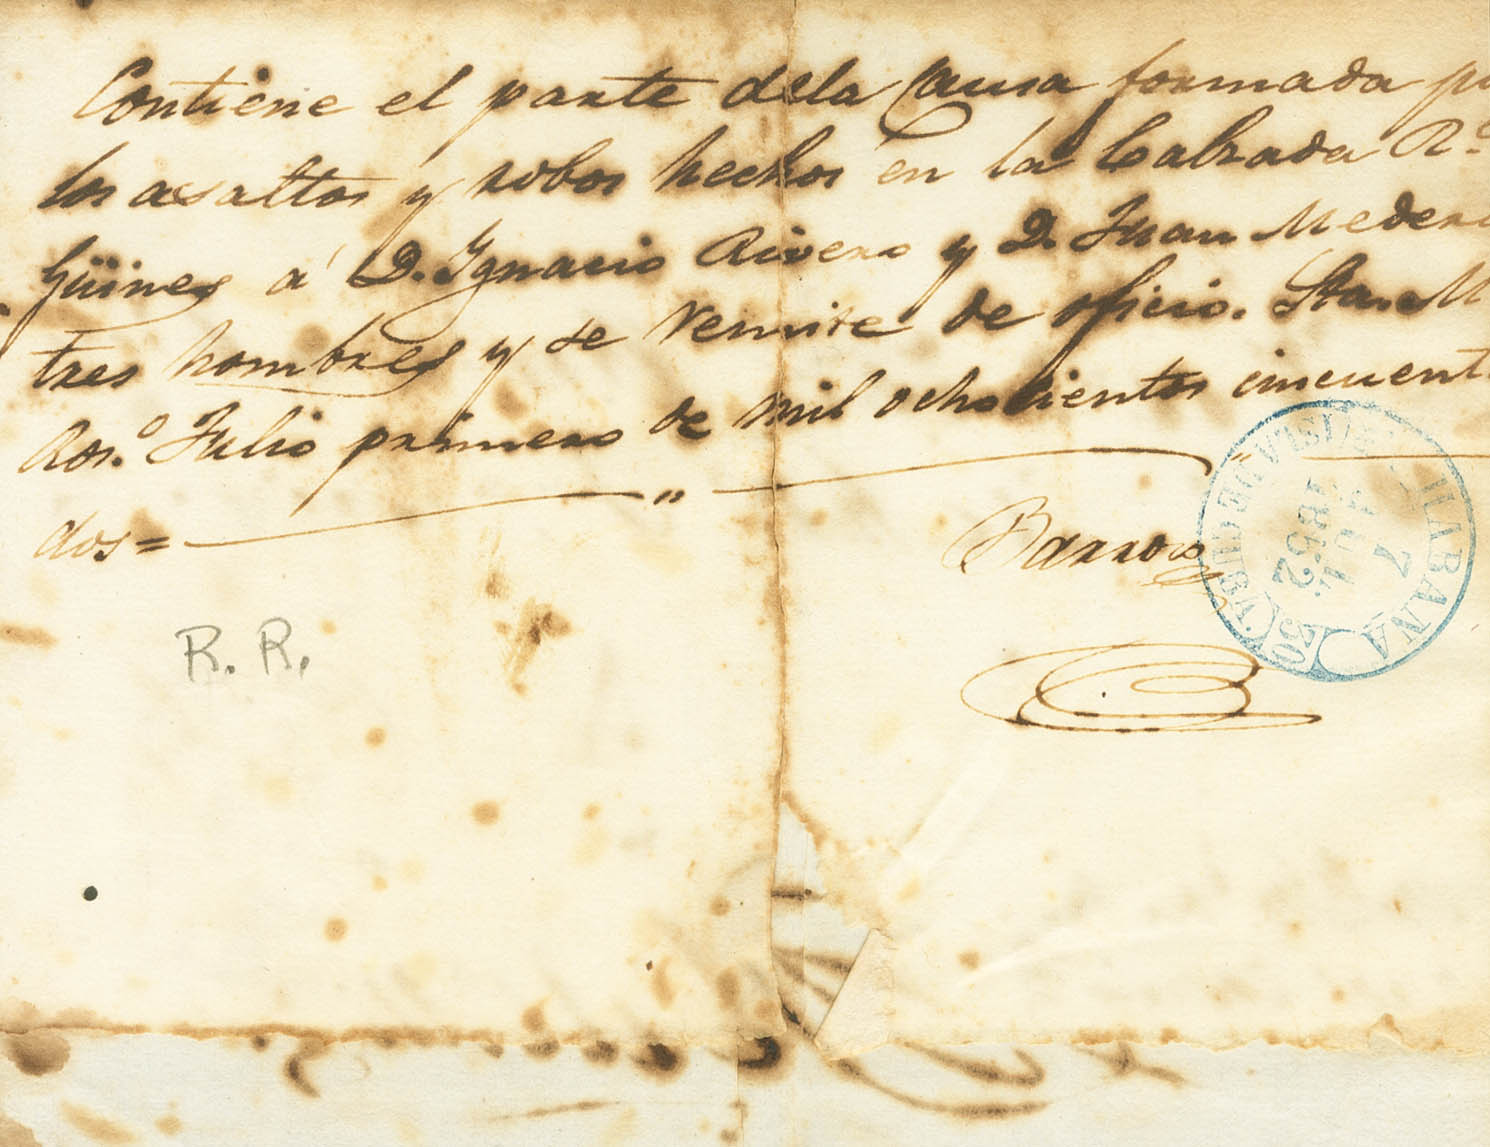 Contiene el parte dela Causa formada po
los asaltos y robos hechos en la Calzada R.ˡ
Güines á D. Ygnacio Rivero y D. Juan Medero
tres hombres y se remite de oficio. Sta. M
Ros.º Julio primero de mil ochocientos cincuent
dos =
Barroso
R. R.
HABANA
7
JUL.
1852
ISLA DE CUBA.